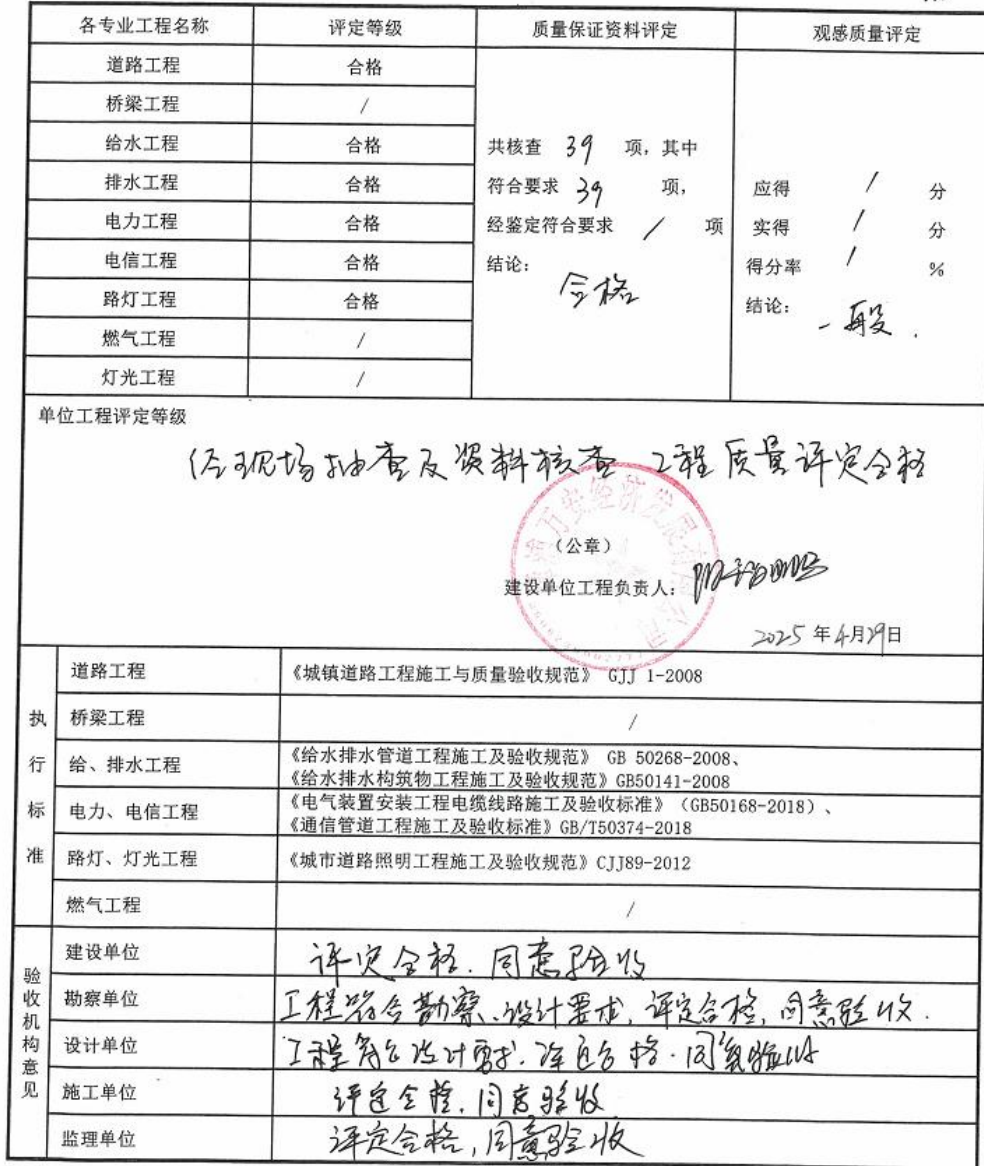 各专业工程名称 评定等级 质量保证资料评定 观感质量评定
道路工程 合格
桥梁工程 /
给水工程 合格 共核查 39 项，其中
排水工程 合格 符合要求 39 项， 应得 / 分
电力工程 合格 经鉴定符合要求 / 项 实得 / 分
电信工程 合格 结论： 合格 得分率 / %
路灯工程 合格 结论： 一般.
燃气工程 /
灯光工程 /
单位工程评定等级
经现场抽查及资料核查 工程质量评定合格
万安经济发展有限公司
（公章）
建设单位工程负责人：
2025 年 4月29日
执行标准
道路工程 《城镇道路工程施工与质量验收规范》 GJJ 1-2008
桥梁工程 /
给、排水工程 《给水排水管道工程施工及验收规范》 GB 50268-2008、
《给水排水构筑物工程施工及验收规范》GB50141-2008
电力、电信工程 《电气装置安装工程电缆线路施工及验收标准》（GB50168-2018）、
《通信管道工程施工及验收标准》GB/T50374-2018
路灯、灯光工程 《城市道路照明工程施工及验收规范》CJJ89-2012
燃气工程 /
验收机构意见
建设单位 评定合格.同意验收
勘察单位 工程符合勘察、设计要求,评定合格,同意验收.
设计单位 工程符合设计要求.评定合格.同意验收
施工单位 评定合格,同意验收
监理单位 评定合格,同意验收